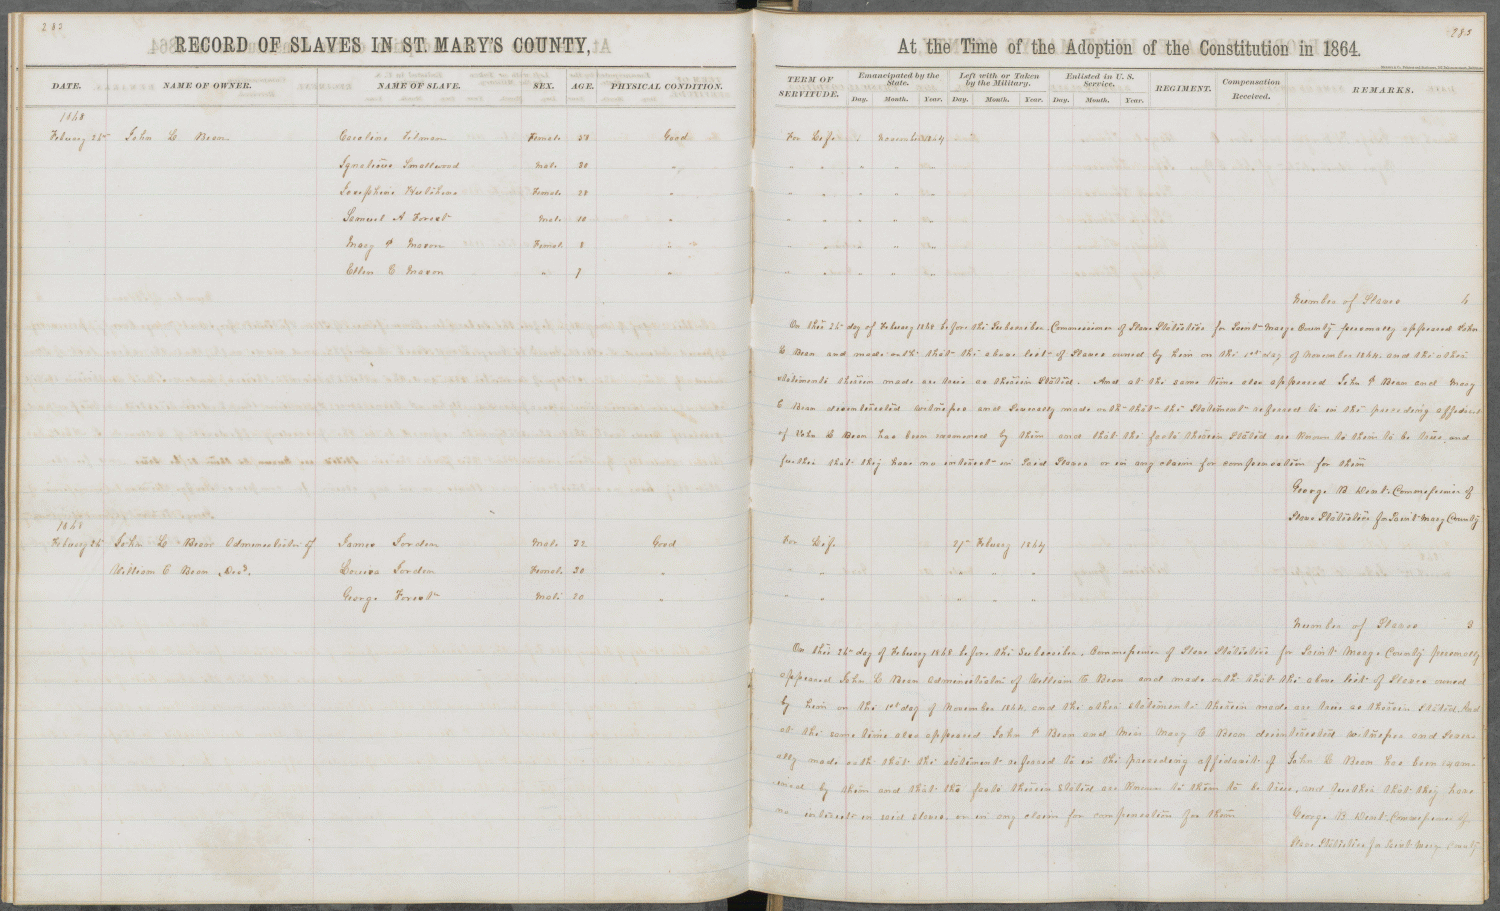 285
RECORD OF SLAVES IN ST. MARY'S COUNTY,
DATE. NAME OF OWNER. NAME OF SLAVE. SEX. AGE. PHYSICAL CONDITION.
1868
John C Bean Caroline Female Good
Ignatious Smallwood Male 30 "
Josephine Hutchins Female 28 "
Samuel A Forest Male 10 "
Mary P Mason Female 8 "
Ellen C Mason " 7 "
1868
John C Bean Administrator of James Jorden Male 32 Good
William E Bean Decd. Louisa Jorden Female 30 "
George Forest Male 20 "
285
At the Time of the Adoption of the Constitution in 1864.
TERM OF SERVITUDE. Emancipated by the State. Left with or Taken by the Military. Enlisted in U. S. Service. REGIMENT. Compensation Received. REMARKS.
Day. Month. Year. Day. Month. Year. Day. Month. Year.
For Life 1 November 1864
" " " " "
" " " " "
" " " " "
" " " " "
" " " " "
Number of Slaves 6
On this 26 day of Febuary 1868 before the Subscriber Commissioner of Slave Statistics for Saint Marys County personaly appeared John
C Bean and made oath that the above list of Slaves owned by him on the 1st day of November 1864 and the other
statements therein made are true as therein Stated. And at the same time also appeared John P Bean and Mary
C Bean disinterested witnesses and Severally made oath that the Statement refered to in the preceding affidavit
of John C Bean has been examened by them and that the facts therein Stated are Known to them to be true and
further that they have no interest in Said Slaves or in any claim for compensation for them
George B Dent. Commissioner of
Slave Statistics for Saint Mary County
For Life Febuary 1864
" " " " "
" " " " "
Number of Slaves 3
On this 26 day of Febuary 1868 before the Subscriber. Commissioner of Slave Statistics for Saint Marys County personally
appeared John C Bean Administrator of William E Bean and made oath that the above list of Slaves owned
by him on the 1st day of November 1864 and the other statements therein made are true as therein stated. And
at the same time also appeared John P Bean and Miss Mary C Bean disinterested witnesses and Sever-
ally made oath that the statement refered to in the preceeding affidavit of John C Bean has been exam-
ened by them and that the facts therein stated are Known to them to be true, and further that they have
no interest in said slaves or in any claim for compensation for them George B Dent. Commissioner of
Slave Statistics for Saint Mary County